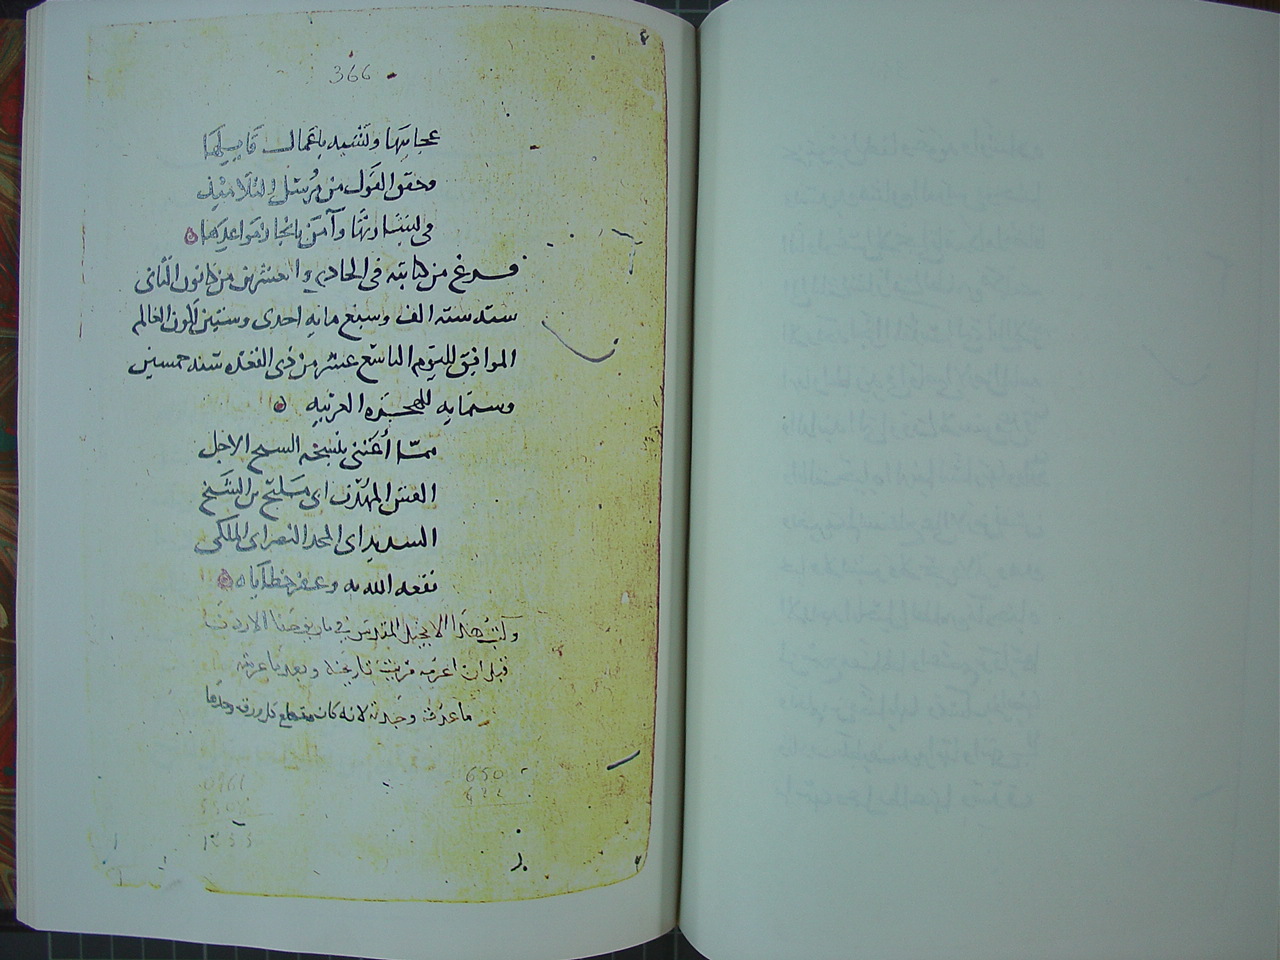 366
عجايبها وتشبه باعمال قايلها
وحقق القول من مرسل التلاميذ
في لبشارتها وآمن بانجاز مواعيدها
فرغ من كتابته في الحادي والعشرين من كانون الثاني
سنه سته الف وسبع مايه احدى وستين لكون العالم
الموافق لليوم التاسع عشر من ذي القعده سنه خمسين
وستمايه للهجره العربيه
مما أعتنى بنسخه الشيخ الاجل
القس المهذب ابي مسلح بن الشيخ
السديد ابي المجد النصراني الملكي
نفعه الله به وغفر خطاياه
وكتب هذا الانجيل المقدس في تاريخنا الارد
قبل ان اعرف قريت تاريخه وبعد ما عرفته
ما عدت وجدته لانه كان مقطع كل ورقه وحدها
650
622